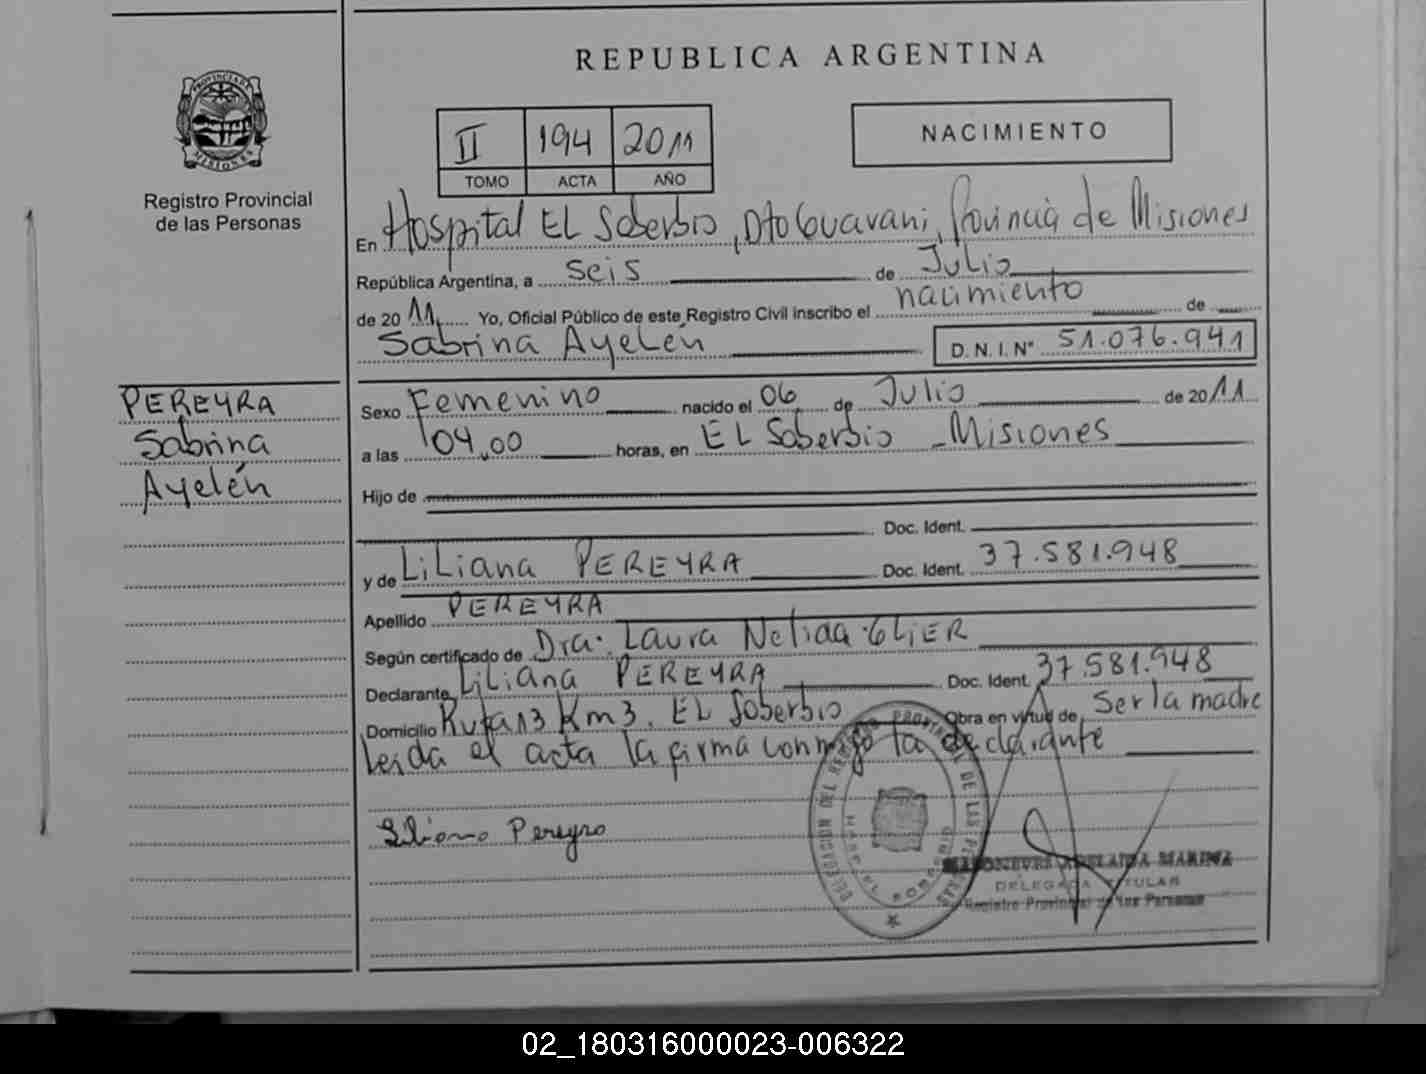 REPUBLICA ARGENTINA
PROVINCIA DE MISIONES
Registro Provincial
de las Personas
II 194 2011
TOMO ACTA AÑO
NACIMIENTO
En Hospital EL Soberbio, Dto Guarani, Provincia de Misiones
República Argentina, a seis de Julio
de 2011 Yo, Oficial Público de este Registro Civil inscribo el nacimiento de
Sabrina Ayelén D.N.I. Nº 51.076.941
PEREYRA
Sabrina
Ayelén
Sexo Femenino nacido el 06 de Julio de 2011
a las 04,00 horas, en EL Soberbio - Misiones
Hijo de
Doc. Ident.
y de LiLiana PEREYRA Doc. Ident. 37.581.948
Apellido PEREYRA
Según certificado de Dra. Laura Nelida GLIER
Declarante LiLiana PEREYRA Doc. Ident. 37.581.948
Domicilio Ruta 13 Km 3. EL Soberbio Obra en virtud de Ser la madre
Leida el acta la firma conmigo la declarante
Liliana Pereyra
DELEGACION DEL REGISTRO PROVINCIAL DE LAS PERSONAS
HOSP. EL SOBERBIO
ADELAIDA MARINA
DELEGADA TITULAR
Registro Provincial de las Personas
02_180316000023-006322